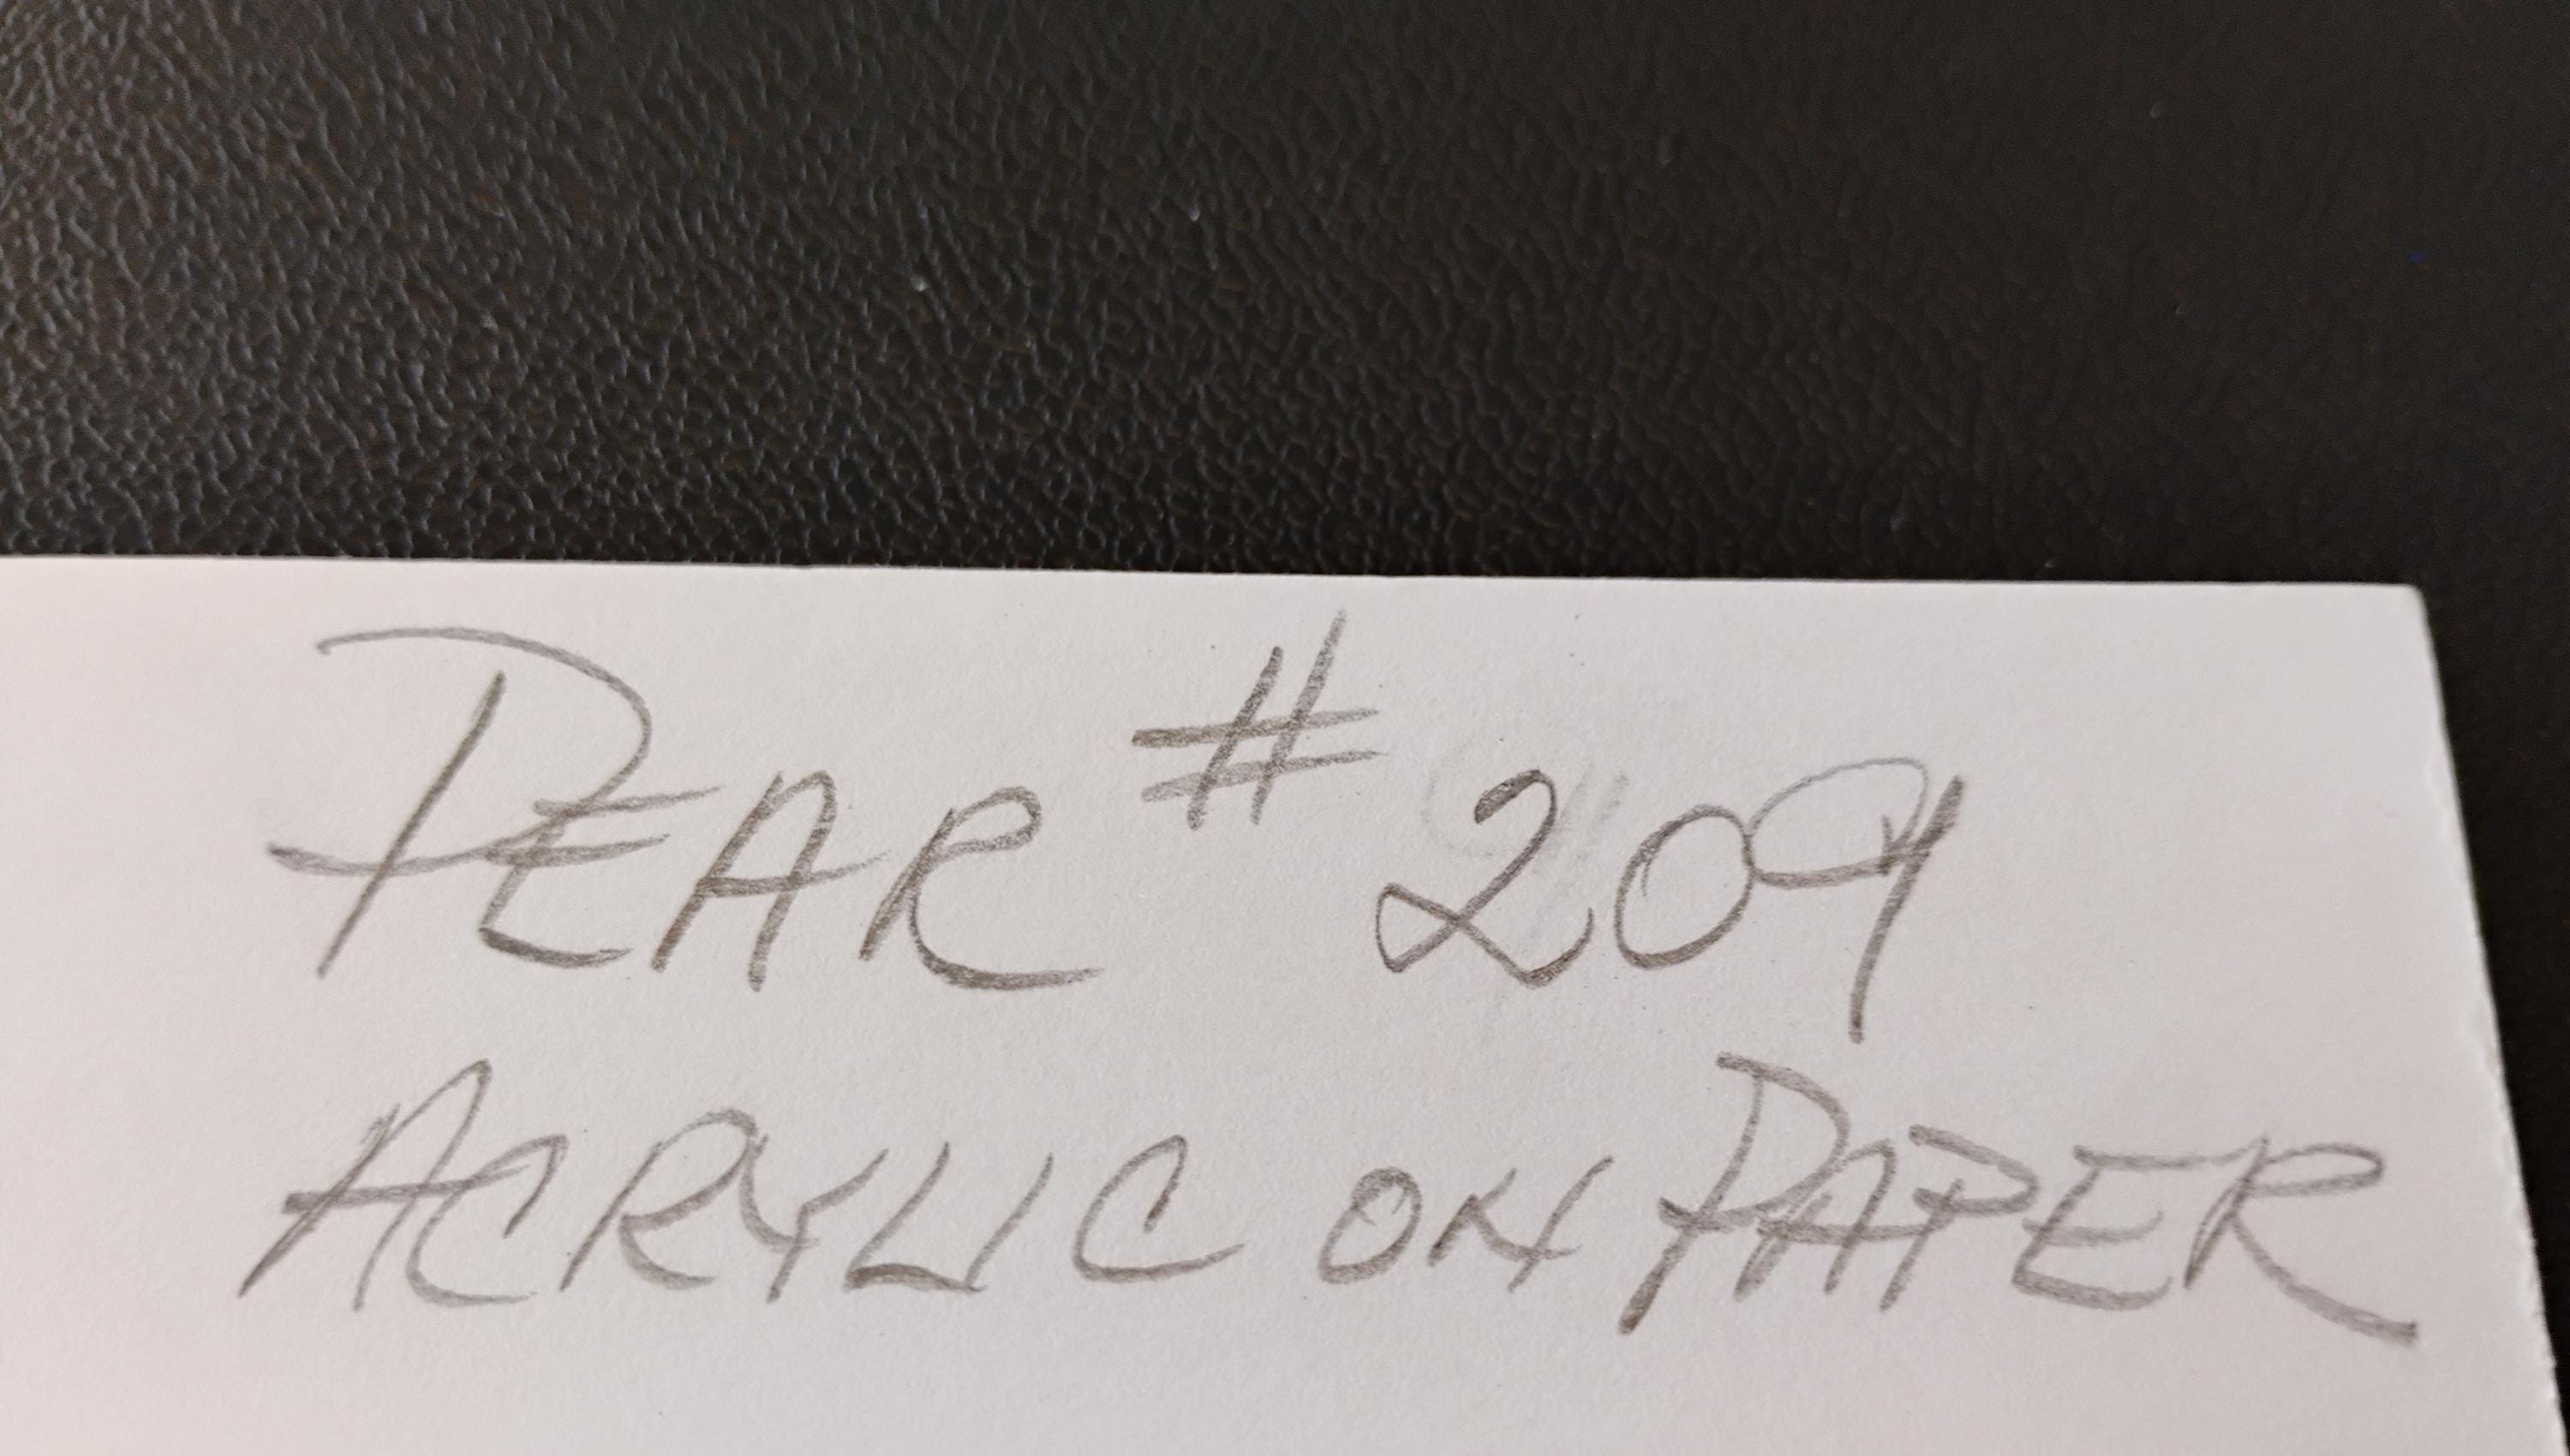 PEAR # 209
ACRYLIC ON PAPER